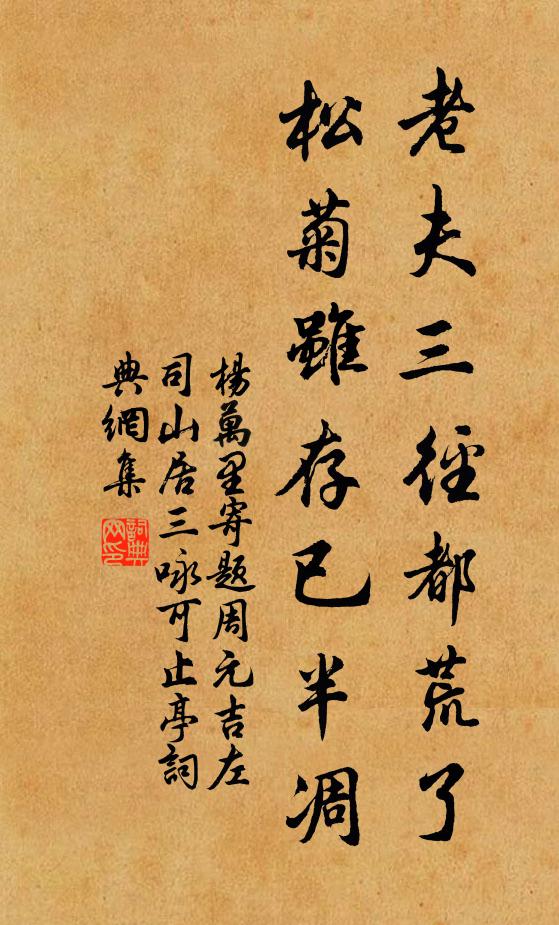 老夫三徑都荒了
松菊雖存已半凋
楊萬里寄題周元吉左
司山居三咏可止亭詞
典網集
詞典網印